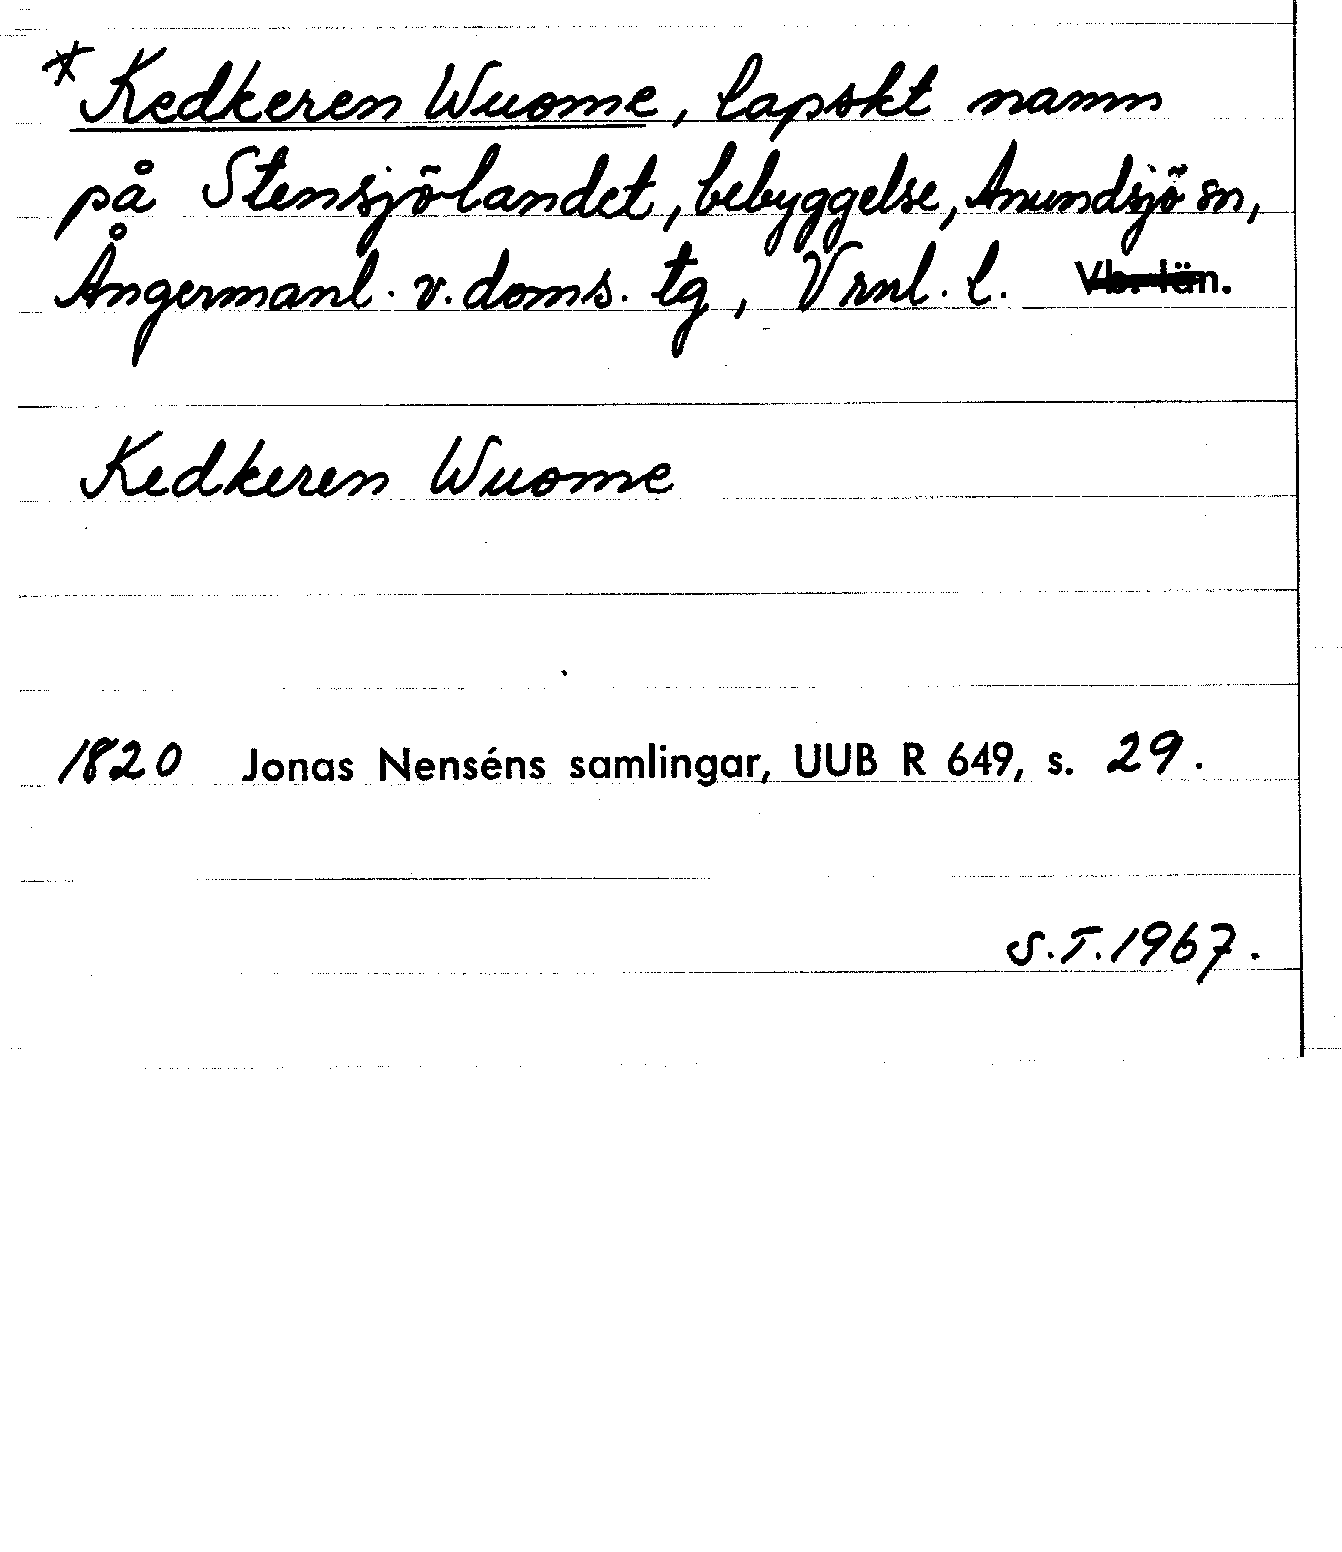 *Kedkeren Wuome, lapskt namn
på Stensjölandet, bebyggelse, Anundsjö sn,
Ångermanl. v. doms. tg, Vrnl. l. Vb. län.
Kedkeren Wuome
1820 Jonas Nenséns samlingar, UUB R 649, s. 29.
S.T.1967.